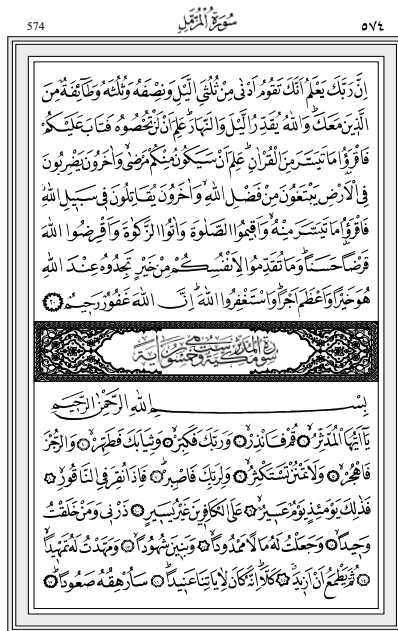 ٥٧٤ سُورَةُ الْمُزَّمِّلِ 574
اِنَّ رَبَّكَ يَعْلَمُ اَنَّكَ تَقُومُ اَدْنٰى مِنْ ثُلُثَيِ الَّيْلِ وَنِصْفَهُ وَثُلُثَهُ وَطَٓائِفَةٌ مِنَ
الَّذ۪ينَ مَعَكَۜ وَاللّٰهُ يُقَدِّرُ الَّيْلَ وَالنَّهَارَۜ عَلِمَ اَنْ لَنْ تُحْصُوهُ فَتَابَ عَلَيْكُمْ
فَاقْرَؤُ۫ا مَا تَيَسَّرَ مِنَ الْقُرْاٰنِۜ عَلِمَ اَنْ سَيَكُونُ مِنْكُمْ مَرْضٰىۙ وَاٰخَرُونَ يَضْرِبُونَ
فِي الْاَرْضِ يَبْتَغُونَ مِنْ فَضْلِ اللّٰهِۙ وَاٰخَرُونَ يُقَاتِلُونَ ف۪ي سَب۪يلِ اللّٰهِۘ
فَاقْرَؤُ۫ا مَا تَيَسَّرَ مِنْهُۙ وَاَق۪يمُوا الصَّلٰوةَ وَاٰتُوا الزَّكٰوةَ وَاَقْرِضُوا اللّٰهَ
قَرْضًا حَسَنًاۜ وَمَا تُقَدِّمُوا لِاَنْفُسِكُمْ مِنْ خَيْرٍ تَجِدُوهُ عِنْدَ اللّٰهِ
هُوَ خَيْرًا وَاَعْظَمَ اَجْرًاۜ وَاسْتَغْفِرُوا اللّٰهَۜ اِنَّ اللّٰهَ غَفُورٌ رَح۪يمٌ ﴿٢٠﴾
سورة المدثر مكية وهي ست وخمسون آية
بِسْمِ اللّٰهِ الرَّحْمٰنِ الرَّح۪يمِ
يَٓا اَيُّهَا الْمُدَّثِّرُۙ ﴿١﴾ قُمْ فَاَنْذِرْۙ ﴿٢﴾ وَرَبَّكَ فَكَبِّرْۙ ﴿٣﴾ وَثِيَابَكَ فَطَهِّرْۙ ﴿٤﴾ وَالرُّجْزَ
فَاهْجُرْۙ ﴿٥﴾ وَلَا تَمْنُنْ تَسْتَكْثِرُۙ ﴿٦﴾ وَلِرَبِّكَ فَاصْبِرْۜ ﴿٧﴾ فَاِذَا نُقِرَ فِي النَّاقُورِۙ ﴿٨﴾
فَذٰلِكَ يَوْمَئِذٍ يَوْمٌ عَس۪يرٌۙ ﴿٩﴾ عَلَى الْكَافِر۪ينَ غَيْرُ يَس۪يرٍ ﴿١٠﴾ ذَرْن۪ي وَمَنْ خَلَقْتُ
وَح۪يدًاۙ ﴿١١﴾ وَجَعَلْتُ لَهُ مَالًا مَمْدُودًاۙ ﴿١٢﴾ وَبَن۪ينَ شُهُودًاۙ ﴿١٣﴾ وَمَهَّدْتُ لَهُ تَمْه۪يدًاۙ
﴿١٤﴾ ثُمَّ يَطْمَعُ اَنْ اَز۪يدَۗ ﴿١٥﴾ كَلَّاۜ اِنَّهُ كَانَ لِاٰيَاتِنَا عَن۪يدًاۜ ﴿١٦﴾ سَاُرْهِقُهُ صَعُودًاۜ ﴿١٧﴾